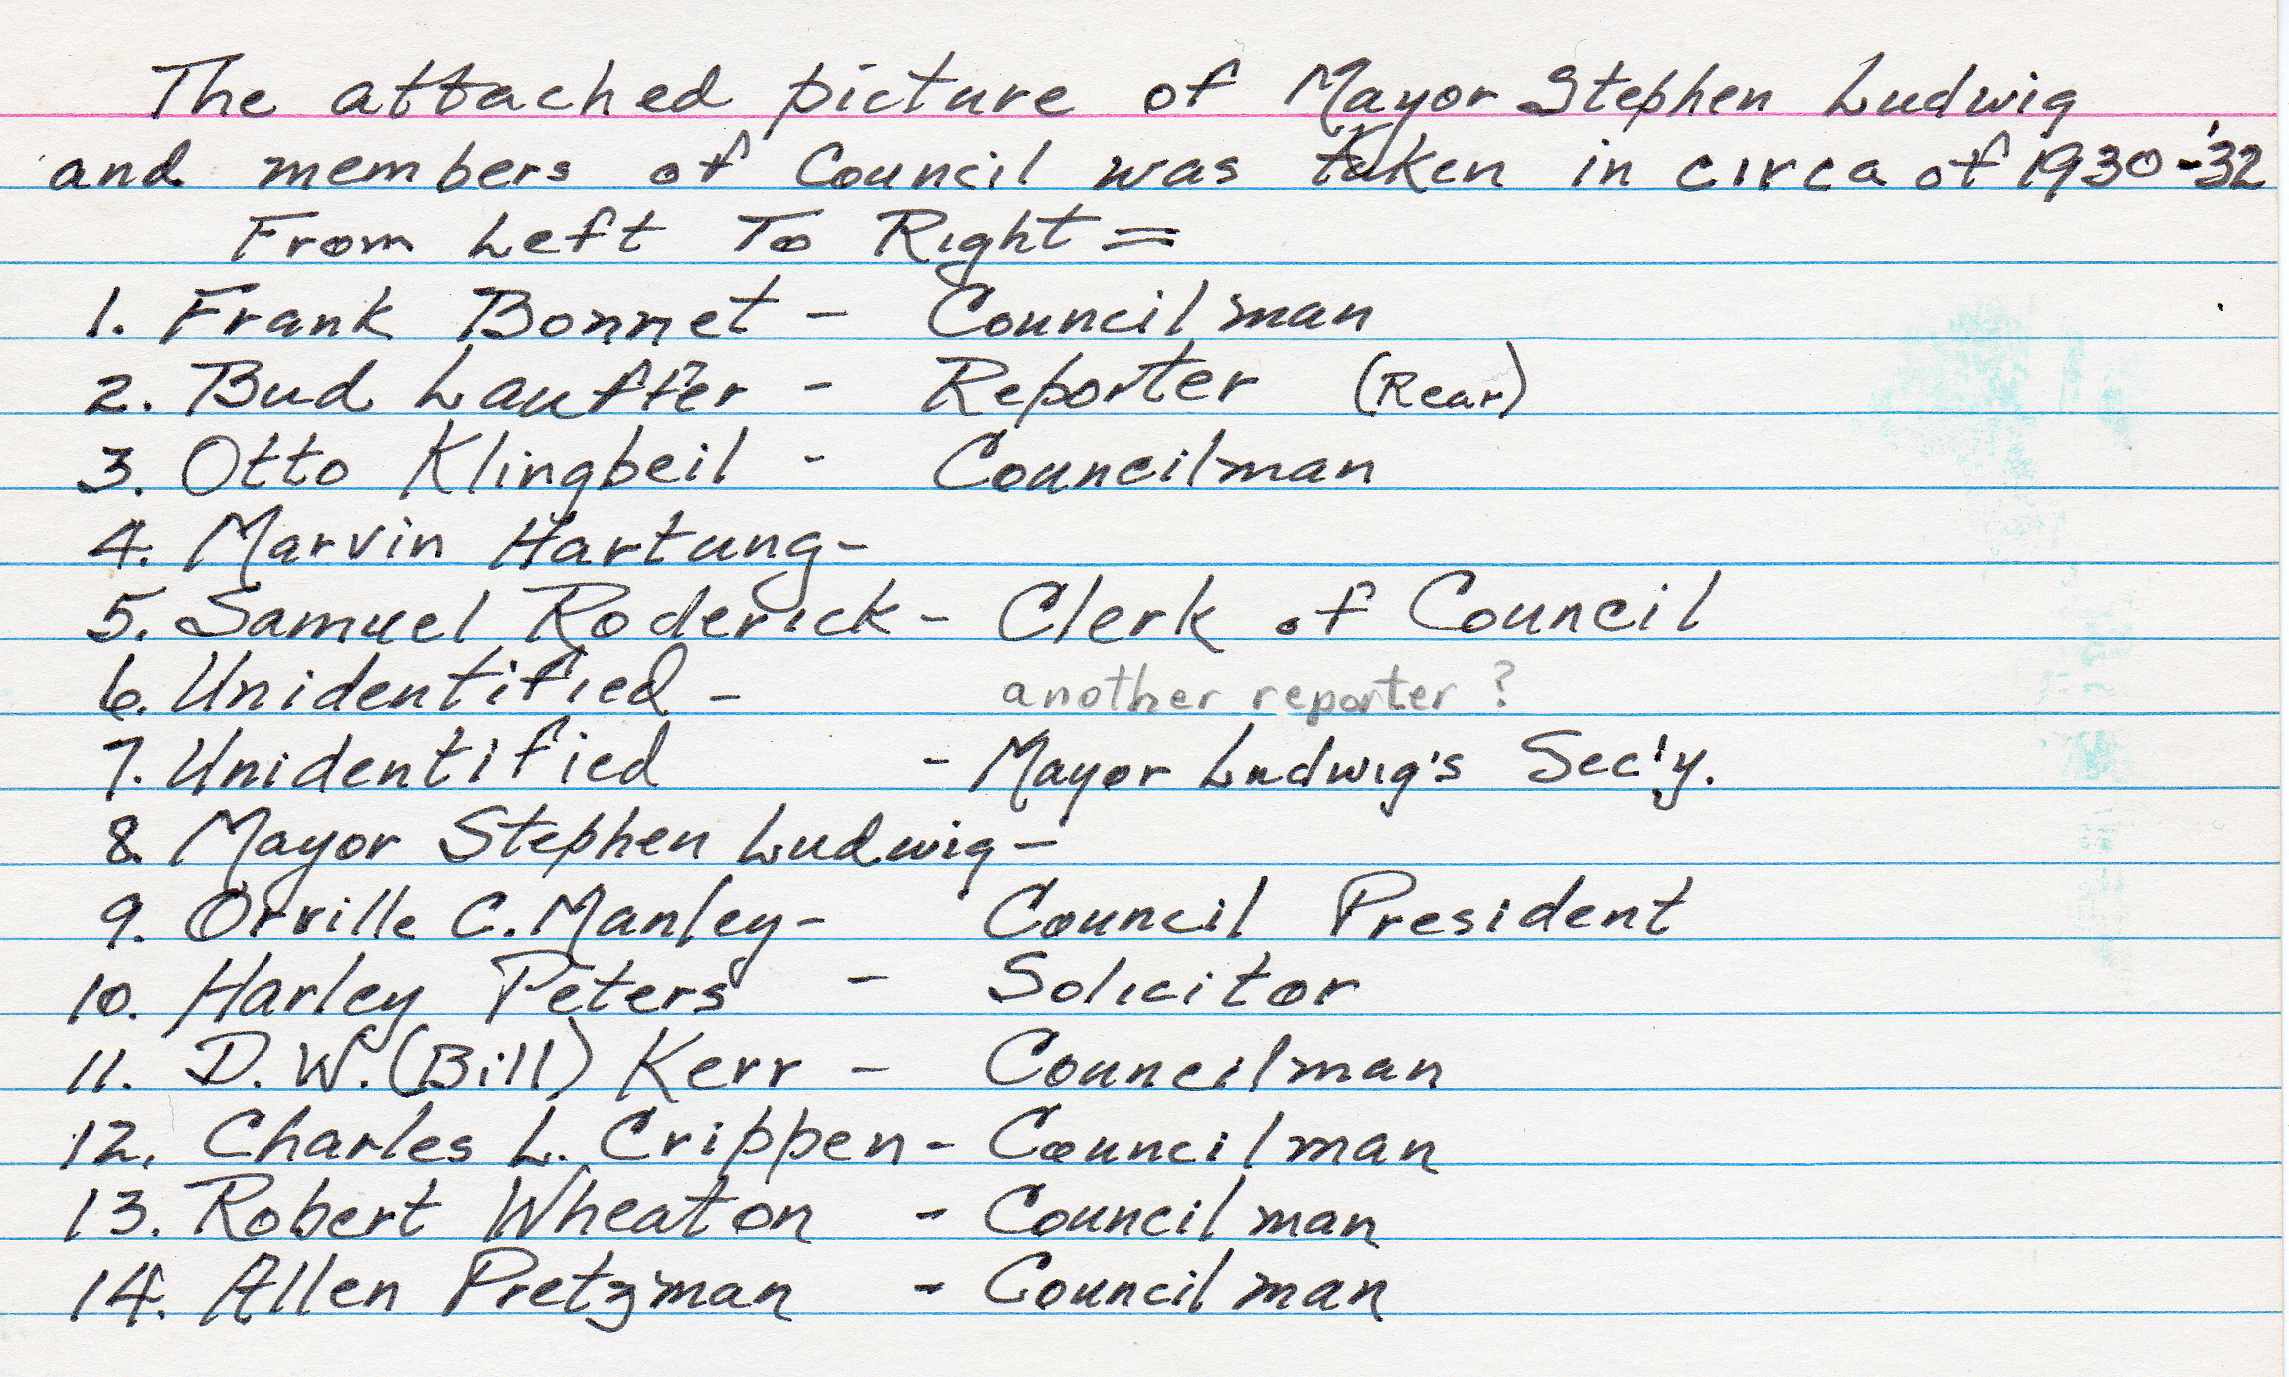 The attached picture of Mayor Stephen Ludwig
and members of Council was taken in circa of 1930-'32
From Left To Right =
1. Frank Bonnet - Councilman
2. Bud Lauffer - Reporter (Rear)
3. Otto Klingbeil - Councilman
4. Marvin Hartung-
5. Samuel Roderick - Clerk of Council
6. Unidentified - another reporter ?
7. Unidentified - Mayor Ludwig's Sec'y.
8. Mayor Stephen Ludwig-
9. Orville C. Manley- Council President
10. Harley Peters - Solicitor
11. D. W. (Bill) Kerr - Councilman
12. Charles L. Crippen - Councilman
13. Robert Wheaton - Councilman
14. Allen Pretzman - Councilman